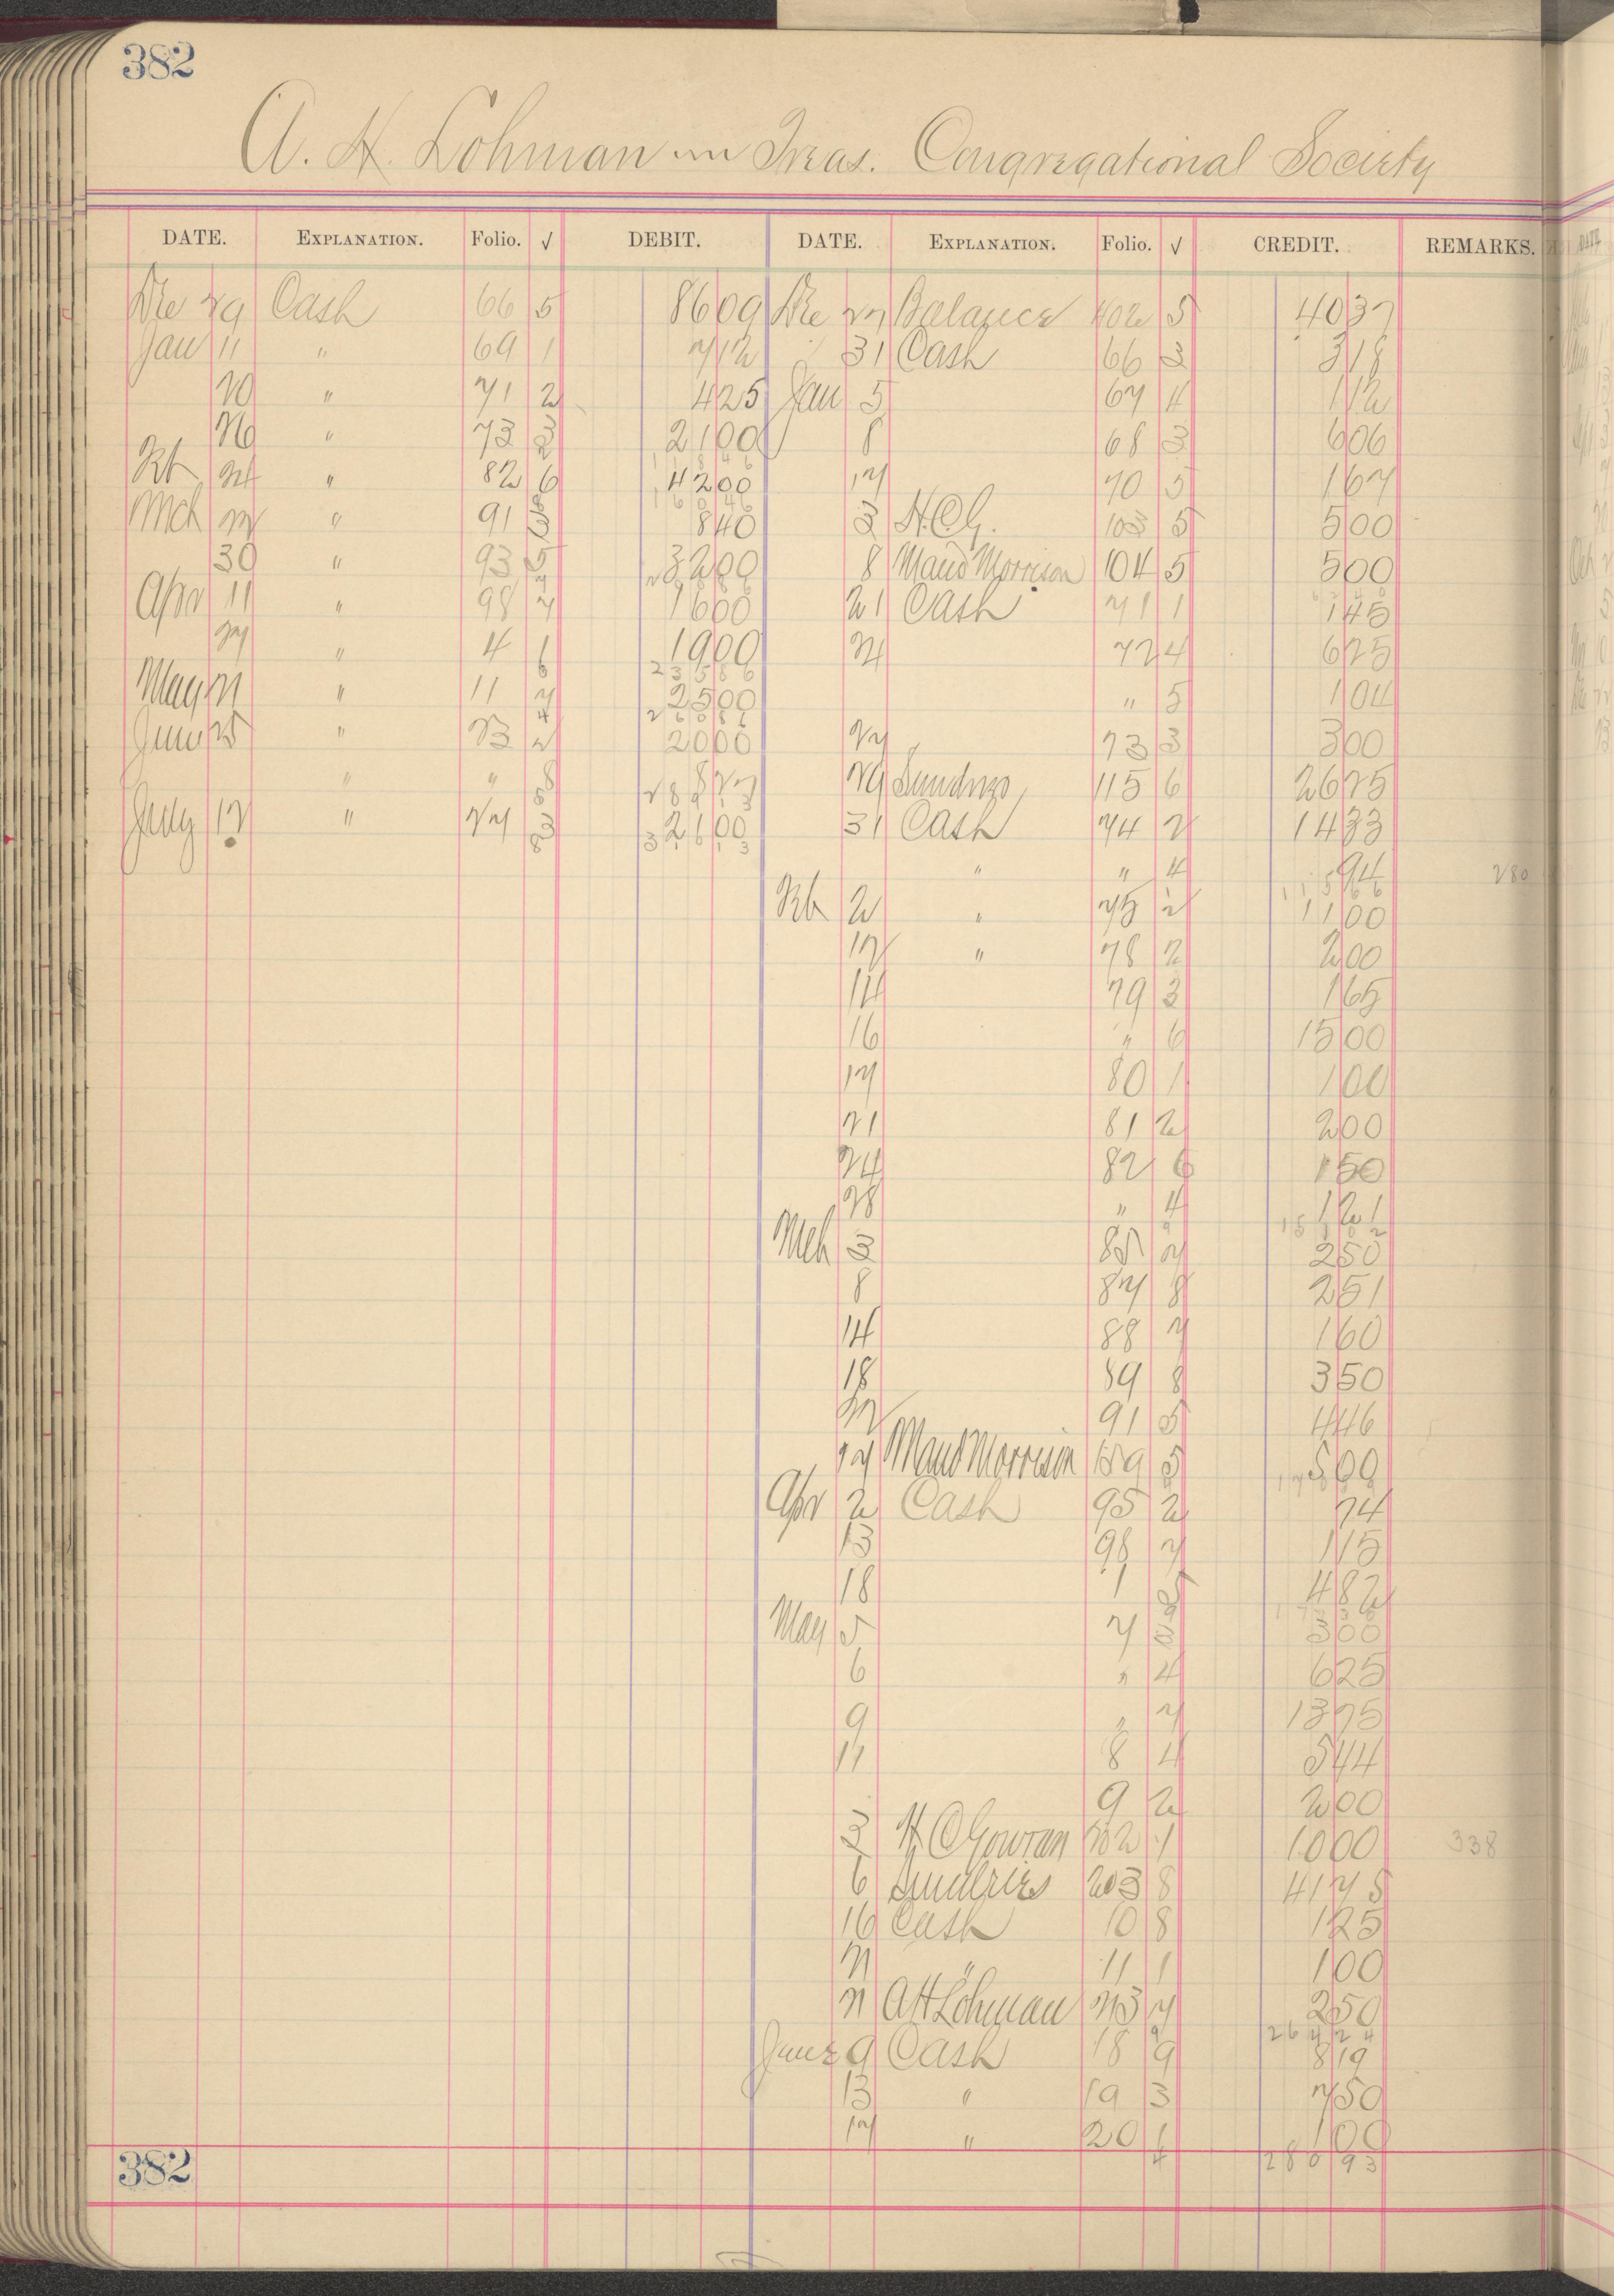 382
A. H. Lohman in Treas. Congregational Society
DATE. EXPLANATION. Folio. √ DEBIT. DATE. EXPLANATION. Folio. √ CREDIT. REMARKS.
Dec 29 Cash 66 5 8609 Dec 27 Balance 402 5 4037
Jan 11 " 69 1 712 31 Cash 66 3 318
20 " 71 2 425 Jan 5 67 4 112
26 " 73 3 2100 8 68 3 606
Feb 24 " 82 6 4200 17 70 5 167
Mch 22 " 91 840 3 H.C.G. 103 5 500
30 " 93 5 3200 8 Maud Morrison 104 5 500
Apr 11 " 98 7 1600 21 Cash 71 1 145
27 " 4 1 1900 24 72 4 625
May 21 " 11 7 2500 " 5 104
June 25 " 23 2 2000 27 73 3 300
" " 8 29 Sundries 115 6 2675
July 12 " 27 3 2100 31 Cash 74 2 1433
" " 4 94 280
Feb 2 " 75 2 1100
12 " 78 2 200
14 79 3 165
16 " 6 1500
17 80 1 100
21 81 2 200
24 82 6 150
28 " 4 121
Mch 3 85 7 250
8 87 8 251
14 88 7 160
18 89 8 350
22 91 5 446
27 Maud Morrison 159 5 500
Apr 2 Cash 95 2 74
13 98 7 115
18 1 482
May 5 7 300
6 " 4 625
9 " 7 1375
11 8 4 544
9 2 200
3 H C Gowran 202 1 1000 338
6 Sundries 203 8 4175
16 Cash 10 8 125
21 " 11 1 100
21 A H Lohman 213 7 250
26424
June 9 Cash 18 9 819
13 " 19 3 750
17 " 20 1 100
28093
382